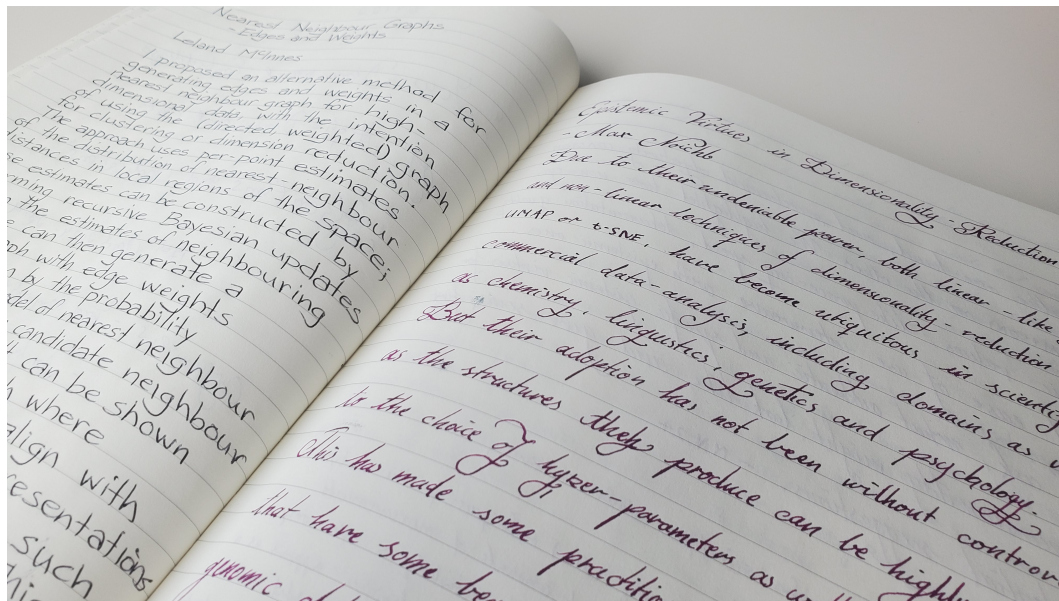 Nearest Neighbour Graphs
- Edges and Weights
Leland McInnes
I proposed an alternative method for
generating edges and weights in a
nearest neighbour graph for high-
dimensional data, with the intention
of using the (directed, weighted) graph
for clustering or dimension reduction.
The approach uses per-point estimates
of the distribution of nearest neighbour
distances in local regions of the space;
estimates can be constructed by
recursive Bayesian updates
the estimates of neighbouring
can then generate a
with edge weights
by the probability
of nearest neighbour
candidate neighbour
can be shown
where
align with
such
Epistemic Virtues in Dimensionality-Reduction
- Max Noichl
Due to their undeniable power, both linear - like
and non-linear techniques of dimensionality-reduction
UMAP or t-SNE, have become ubiquitous in
commercial data-analysis, including domains as
as chemistry, linguistics, genetics and psychology.
But their adoption has not been without
as the structures they produce can be
to the choice of hyper-parameters as
This has made some
that have some
genomic